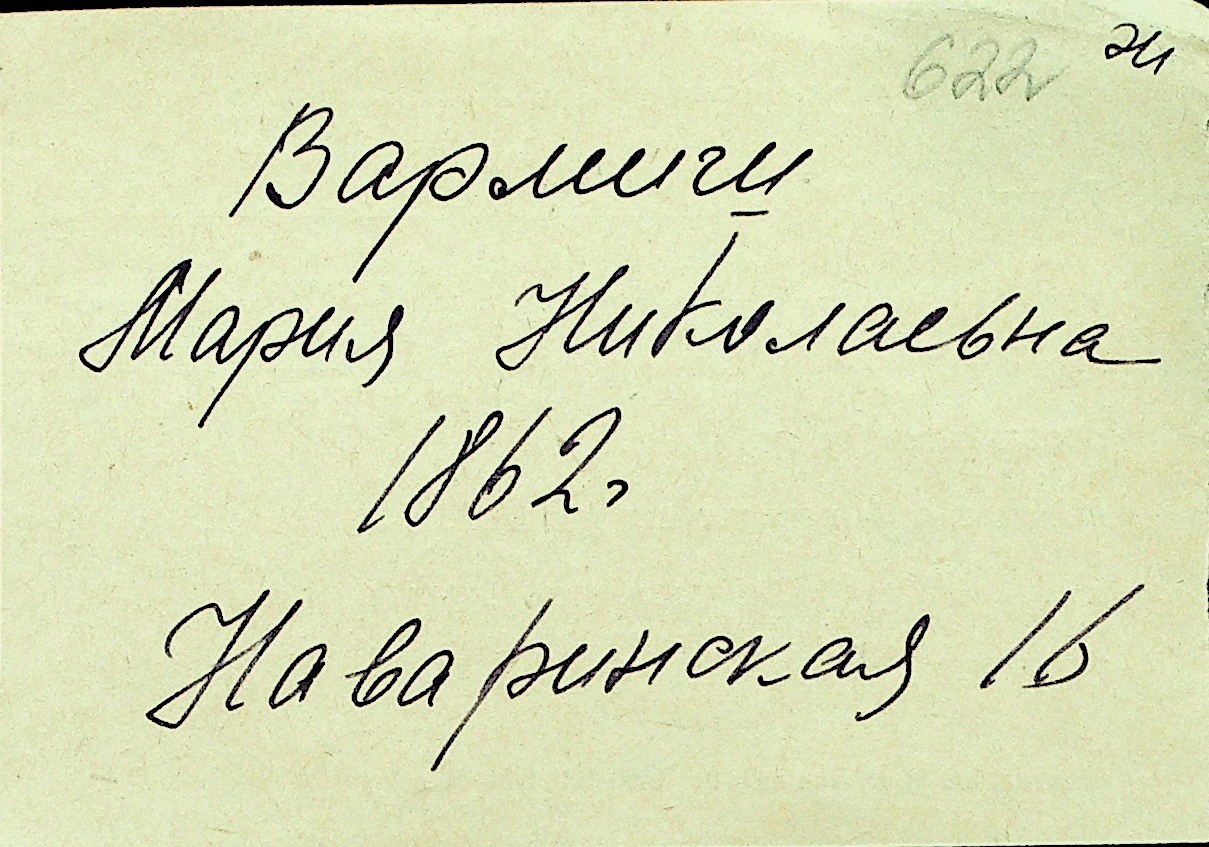 622
Мария Николаевна
1862г
Наваринская 16